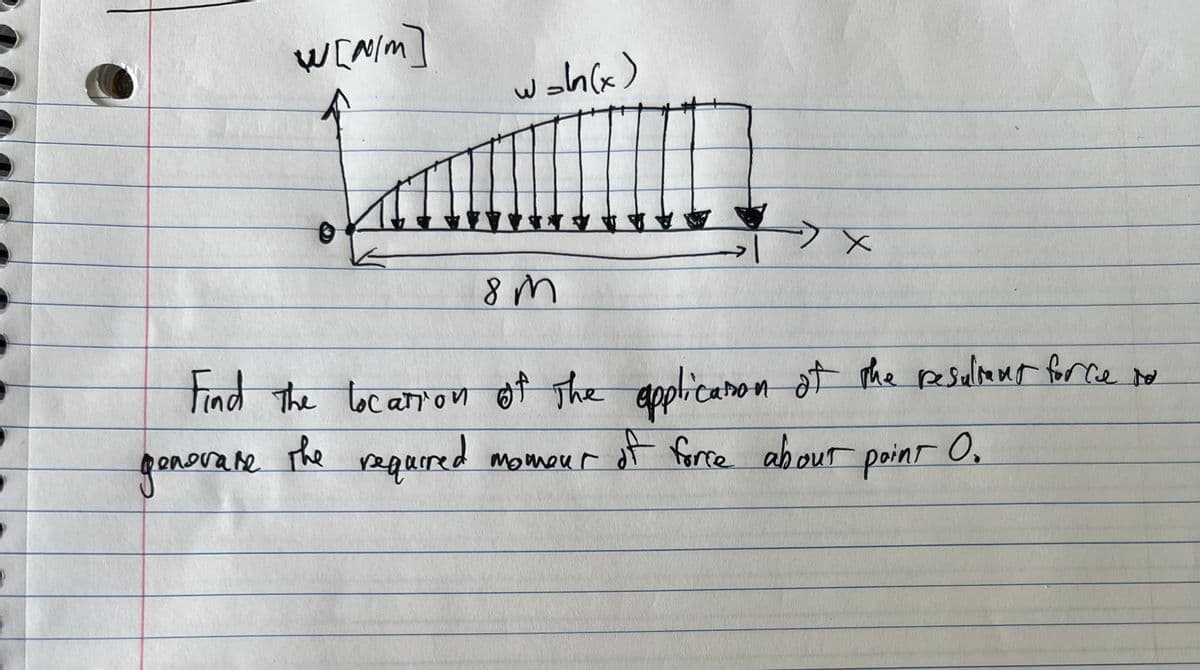 W[N/m]
w=ln(x)
O
x
8m
Find the location of the application of the resultant force to
generate the required moment of force about point O.